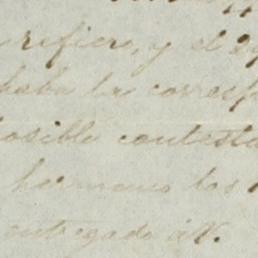 refiero, y el
haba la corresp
posible contesta
hermano los
entregado á V.